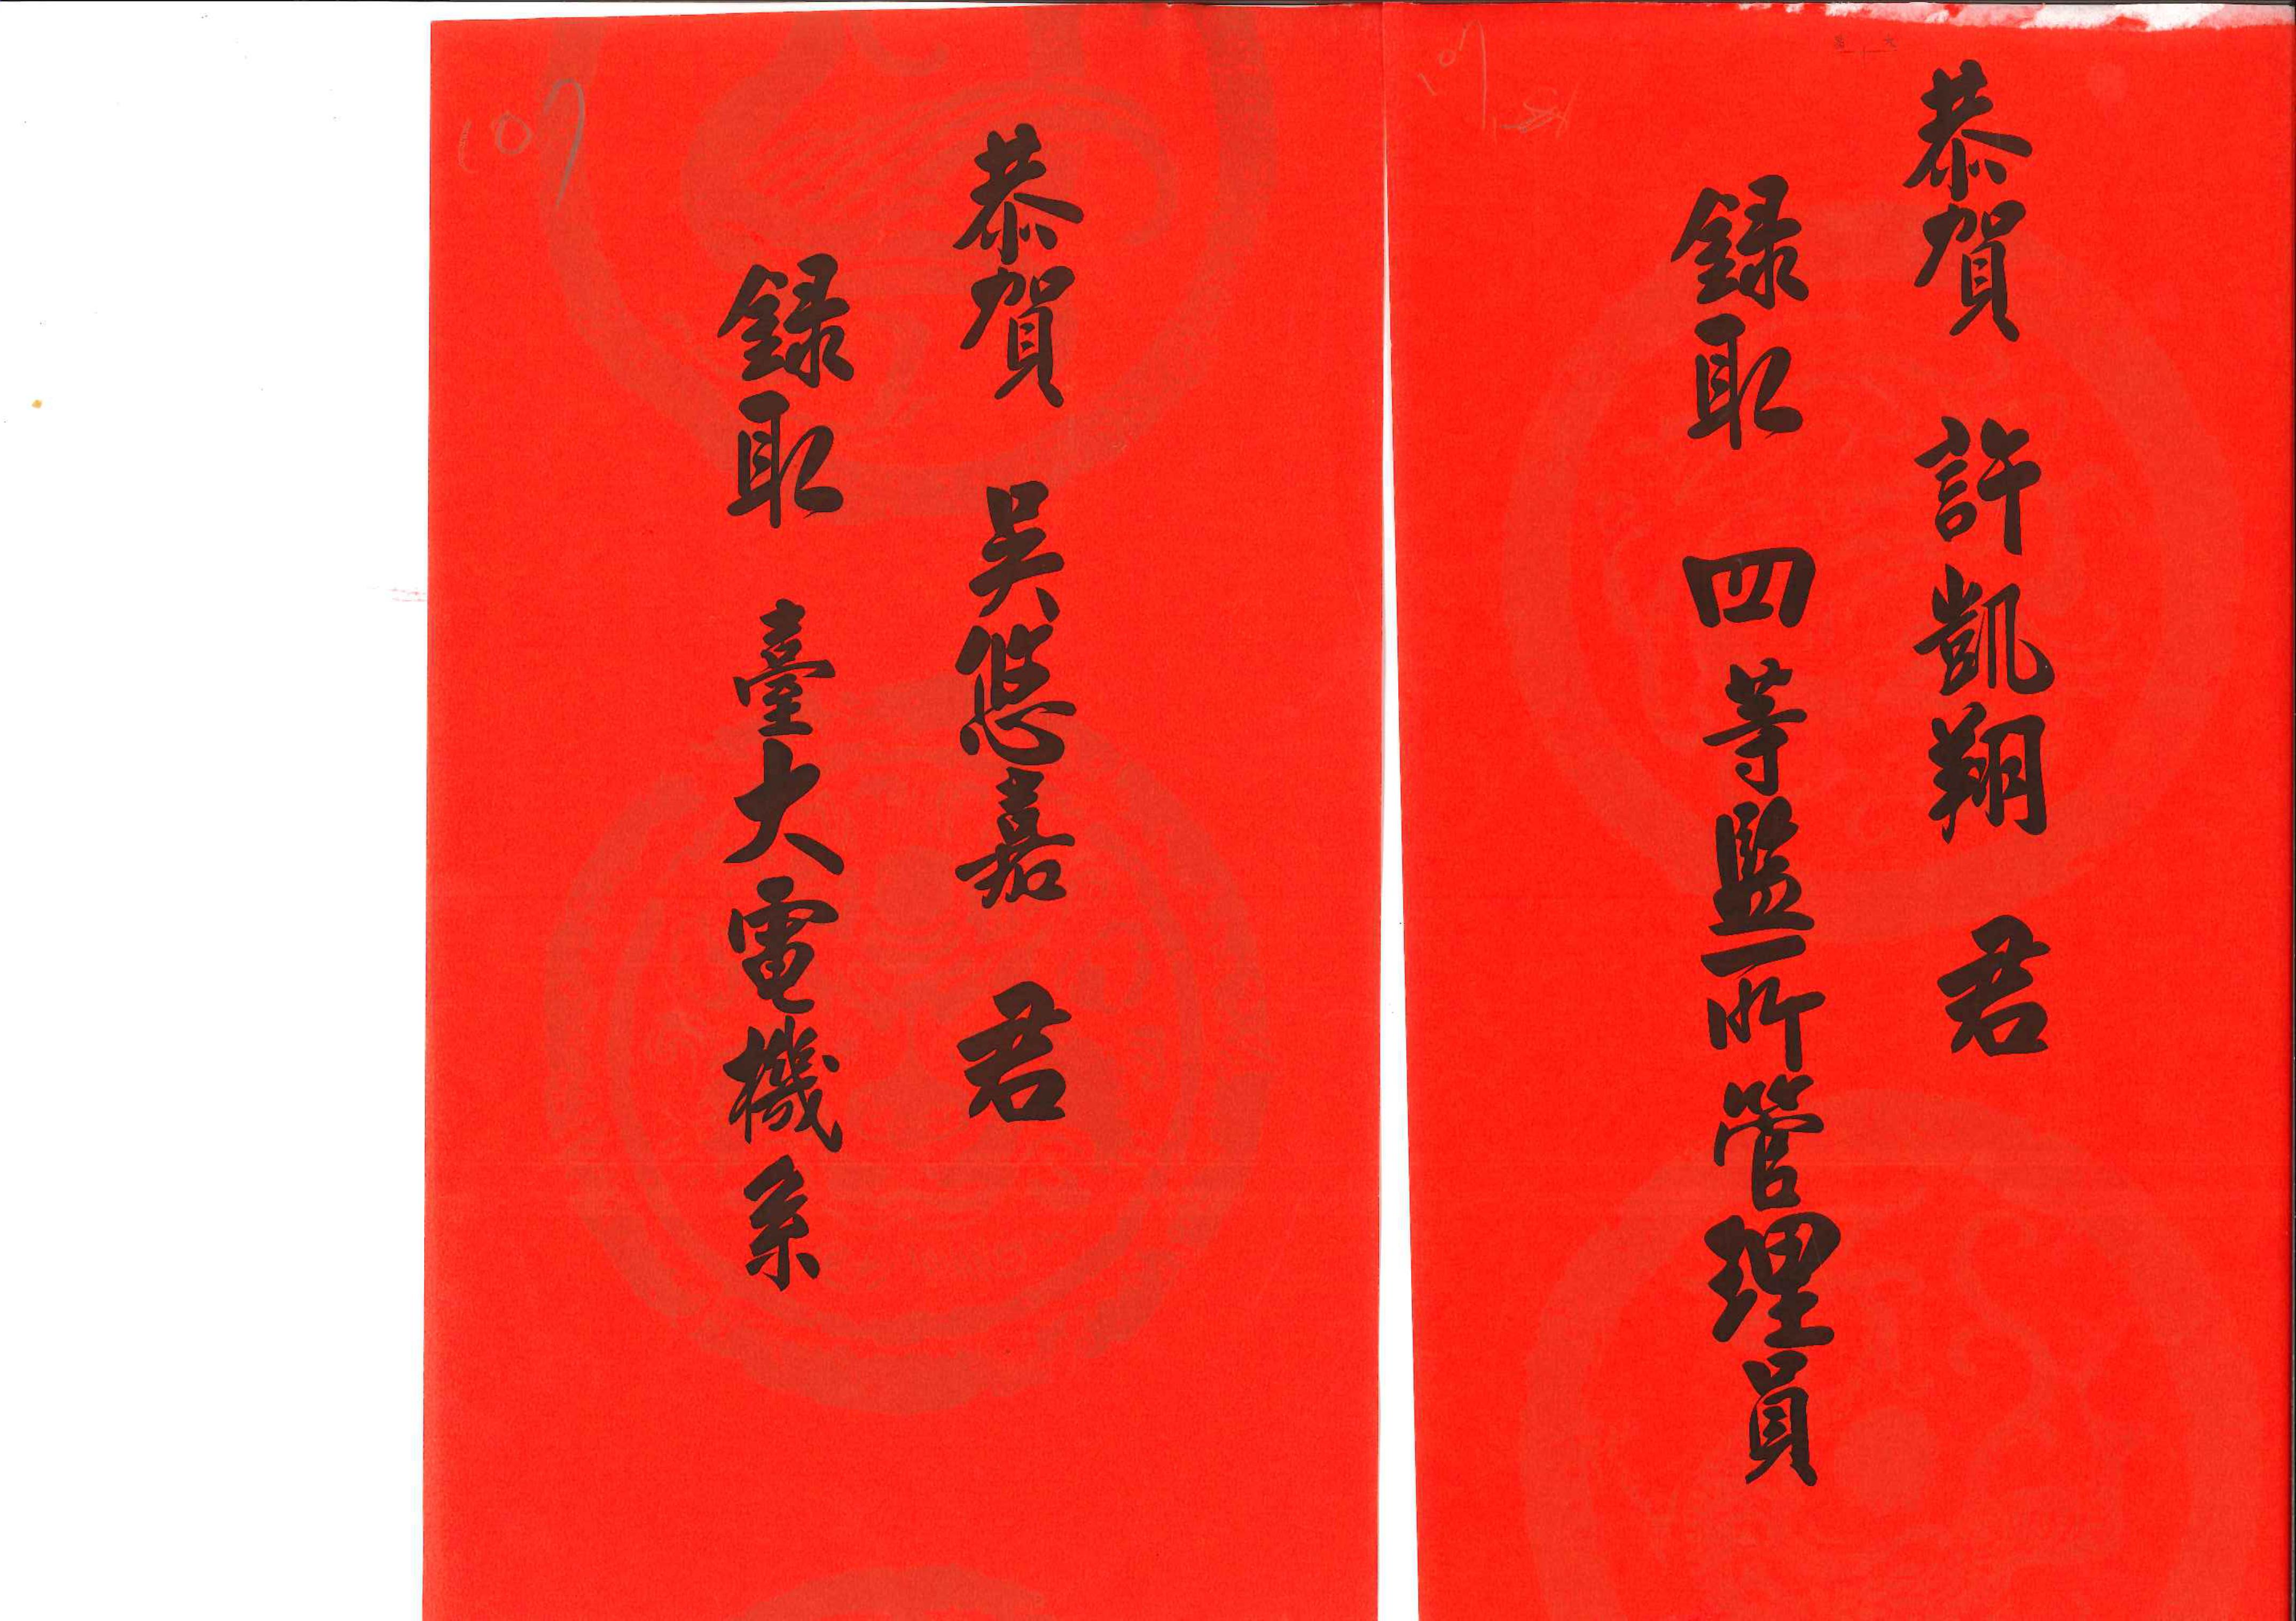 恭賀 許凱翔 君
錄取 四等監所管理員
107
恭賀 吳悠嘉 君
錄取 臺大電機系
107